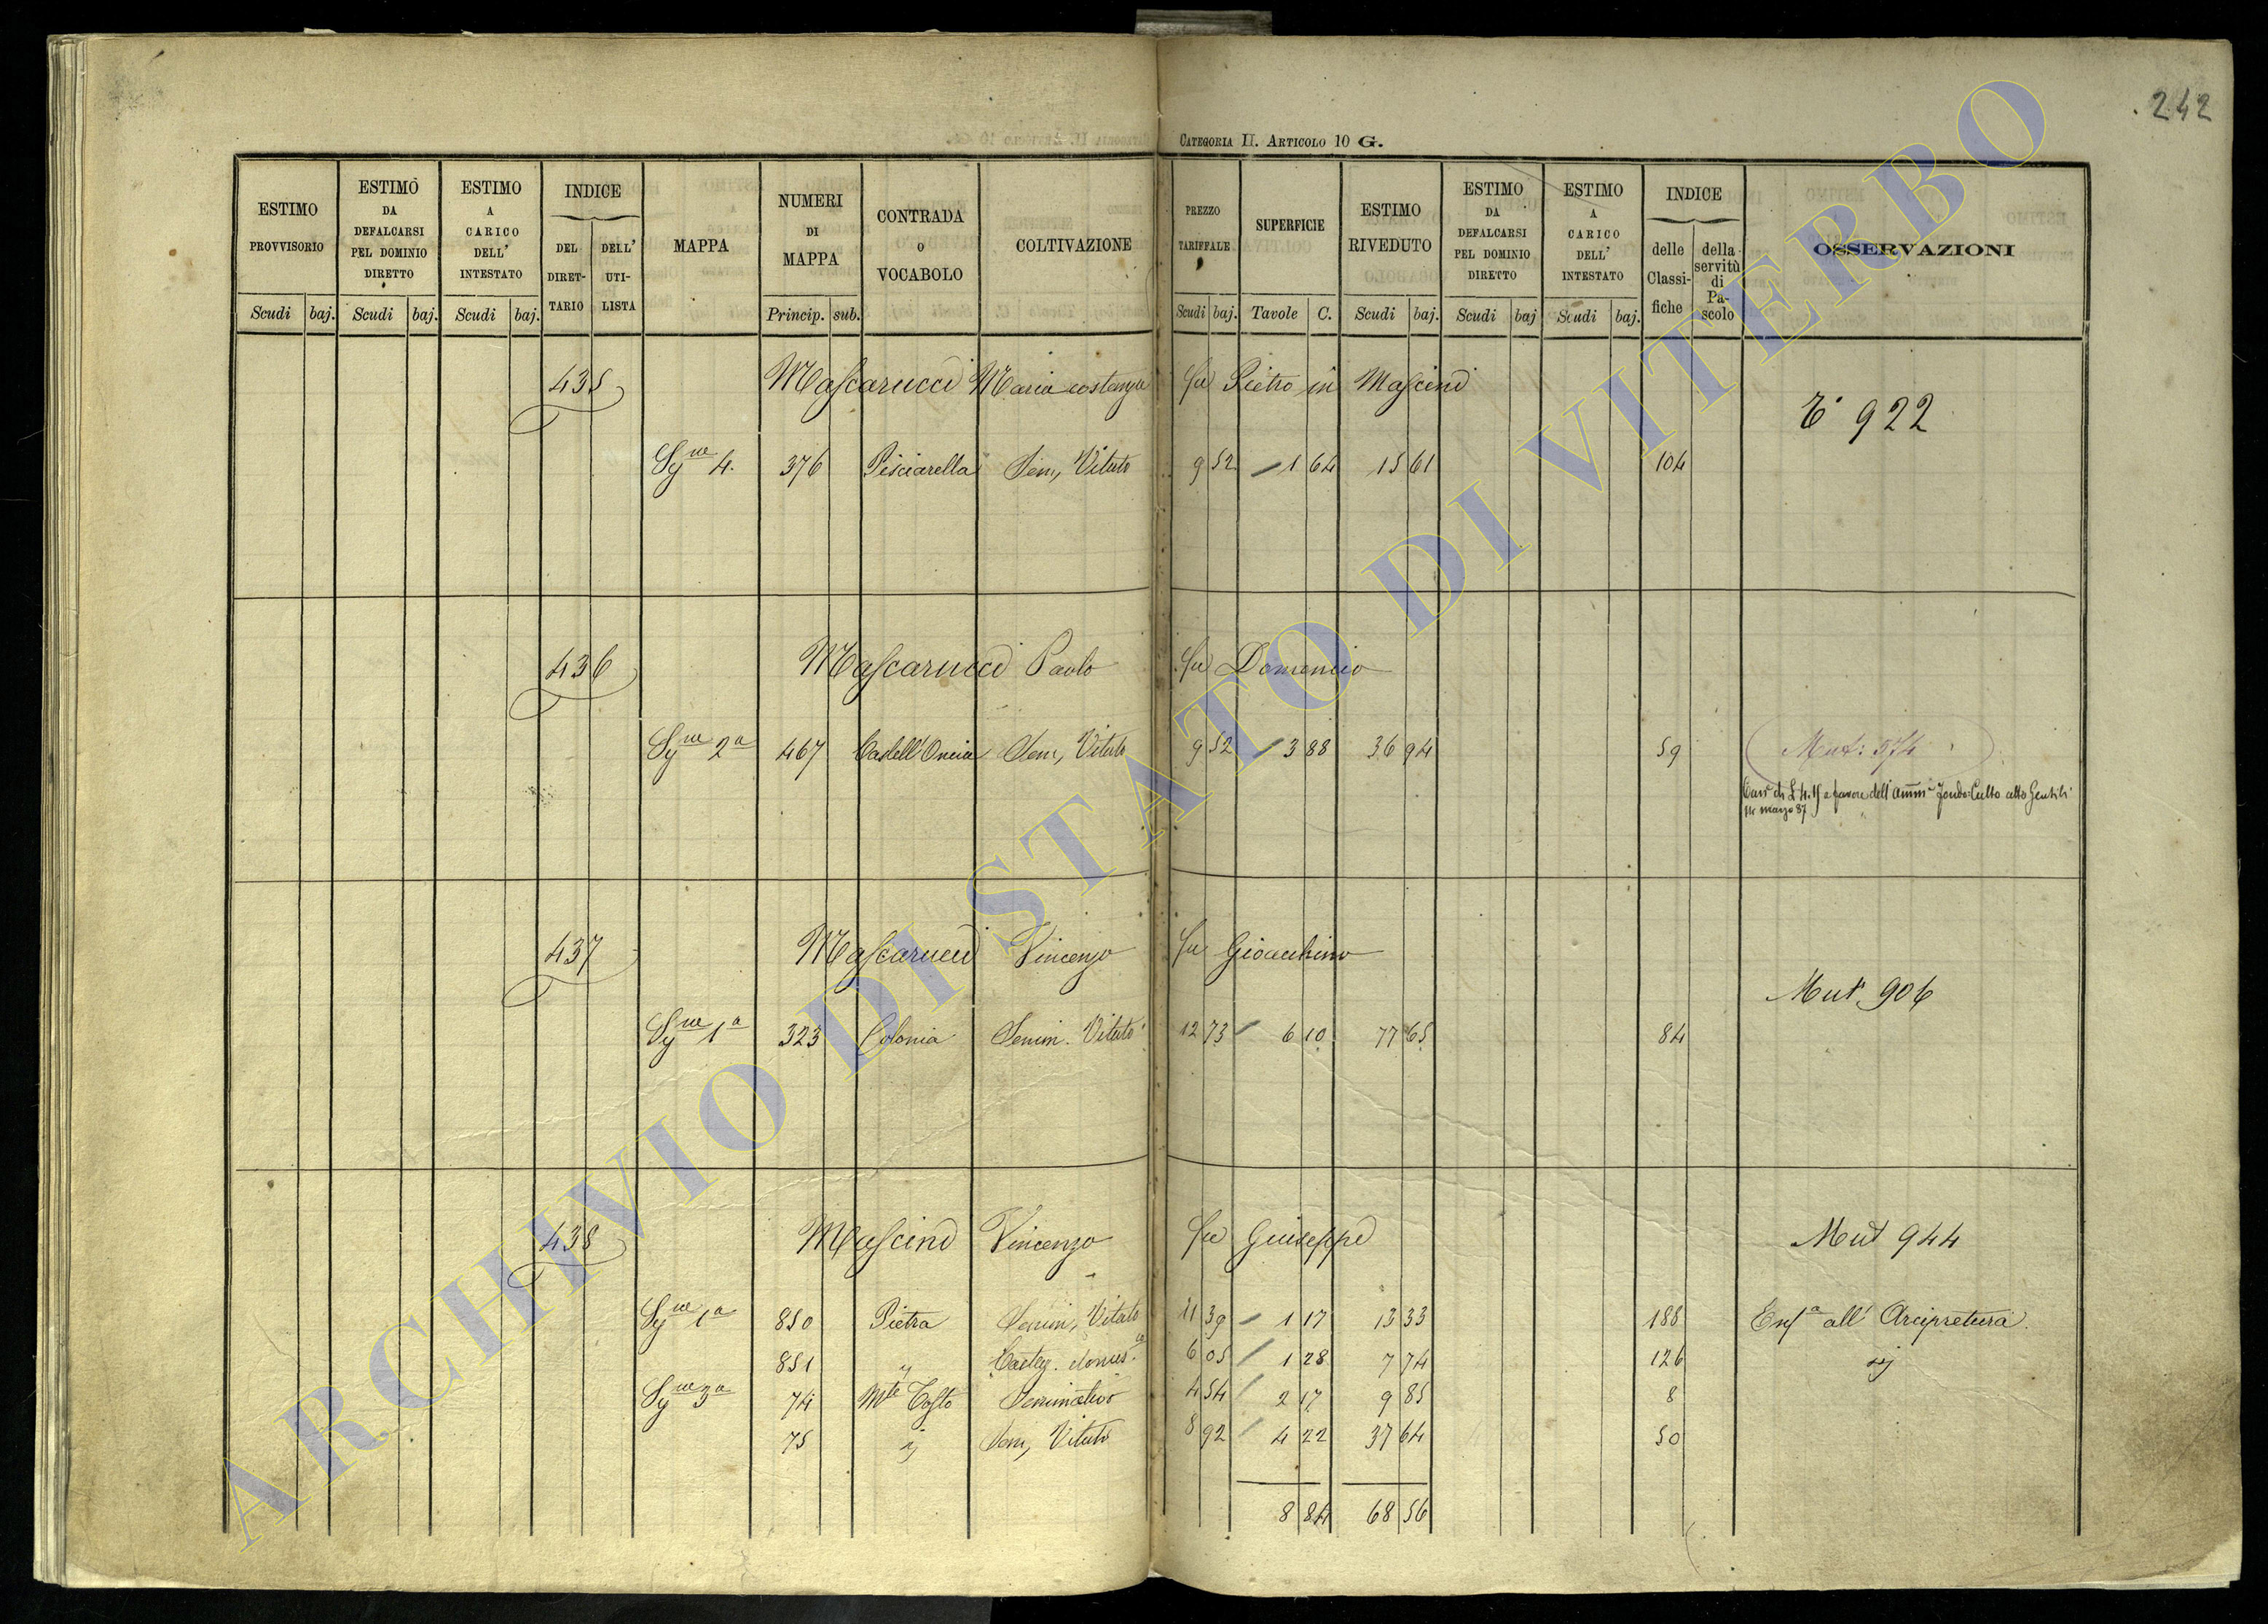 242
CATEGORIA II. ARTICOLO 10 G.
ESTIMO PROVVISORIO Scudi baj.
ESTIMO DA DEFALCARSI PEL DOMINIO DIRETTO Scudi baj.
ESTIMO A CARICO DELL' INTESTATO Scudi baj.
INDICE DEL DIRETTARIO DELL' UTILISTA
MAPPA
NUMERI DI MAPPA Princip. sub.
CONTRADA O VOCABOLO
COLTIVAZIONE
PREZZO TARIFFALE Scudi baj.
SUPERFICIE Tavole C.
ESTIMO RIVEDUTO Scudi baj.
ESTIMO DA DEFALCARSI PEL DOMINIO DIRETTO Scudi baj
ESTIMO A CARICO DELL' INTESTATO Scudi baj.
INDICE delle Classifiche della servitù di Pascolo
OSSERVAZIONI
435 Mascarucci Maria costanza fu Pietro in Mascini
922
Sne 4. 376 Pisciarella Sem, Vitato 9 52 1 64 15 61 104
436 Mascarucci Paolo fu Domenico
Sne 2a 467 Castell'Oncia Sem, Vitato 9 52 3 88 36 94 59 Mut: 574
a favore dell' Ammne Fondo Culto atto Gentili
marzo 87
437 Mascarucci Vincenzo fu Gioacchino
Mut 906
Sne 1a 323 Colonia Semin. Vitato 12 73 6 10 77 65 84
438 Mascini Vincenzo fu Giuseppe Mut 944
Sne 1a 850 Pietra Semin, Vitato 11 39 1 17 13 33 188 Enfa all' Arcipretura
851 " Casteg. domesca 6 05 1 28 7 74 126 "
Sne 3a 74 Mte Tosto Seminativo 4 54 2 17 9 85 8
75 " Sem, Vitato 8 92 4 22 37 64 50
8 84 68 56
ARCHIVIO DI STATO DI VITERBO